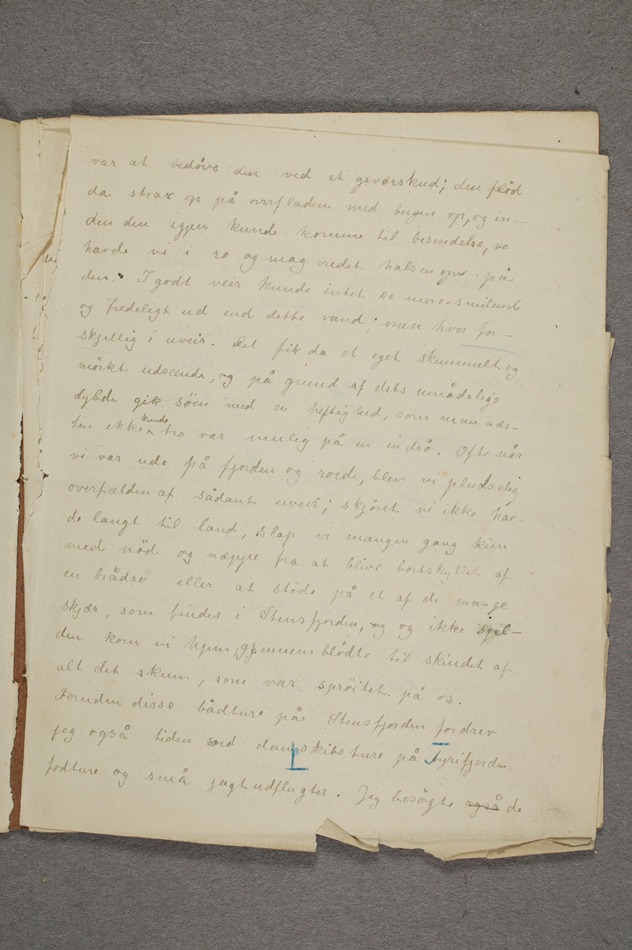 var at bedöve den ved et geværskud; den flöd
da strax op på overfladen med bugen op, og in-
den den igjen kunde komme til besindelse, va
havde vi i ro og mag vredet halsen om på
den. I godt veir kunde intet se mere smilende
og fredeligt ud end dette vand; men hvor for-
skjellig i uveir. Det fik da et eget skummelt og
mörkt udseende, og på grund af dets umådelige
dybde gik söen med en heftighed, som man næs-
ten ikke kunde tro var mulig på en indsö. Ofte når
vi var ude på fjorden og roede, blev vi pludselig
overfalden af sådant uveir; skjönt vi ikke hav-
de langt til land, slap vi mangen gang kun
med nöd og næppe fra at blive bortskyllet af
en brådsö eller at stöde på et af de mange
skjær, som findes i Stensfjorden, og og ikke sjel-
den kom vi hjem, gjennemblödte til skindet af
alt det skum, som var spröitet på os.
Foruden disse bådture på Stensfjorden fordrev
jeg også tiden med dampskibsture på Tyrifjorden,
fodture og små jagtudflugter. Jeg besögte også de